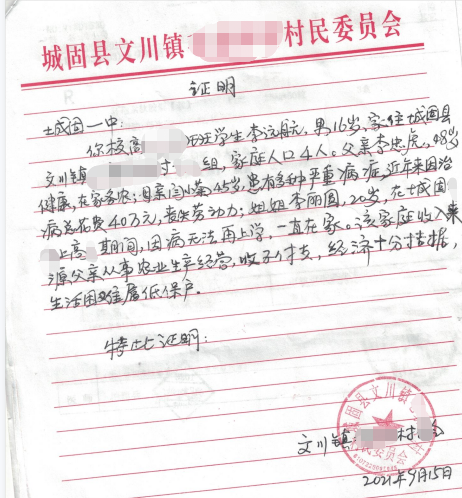 城固县文川镇 村民委员会
证明
城固一中:
你校高 班学生李远航,男,16岁,家住城固县
文川镇 村 组,家庭人口4人。父亲李忠虎,48岁
健康,在家务农;母亲闫小 45岁,患有多种严重病症,近年来因治
病总花费40万元,丧失劳动力;姐姐李丽圆,20岁,在城固
上高 期间,因病无法再上学,一直在家。该家庭收入来
源父亲从事农业生产经营,收不付支,经济十分拮据,
生活困难属低保户。
特此证明:
文川镇 村 会
2021年9月15日
城固县文川镇
村民委员会